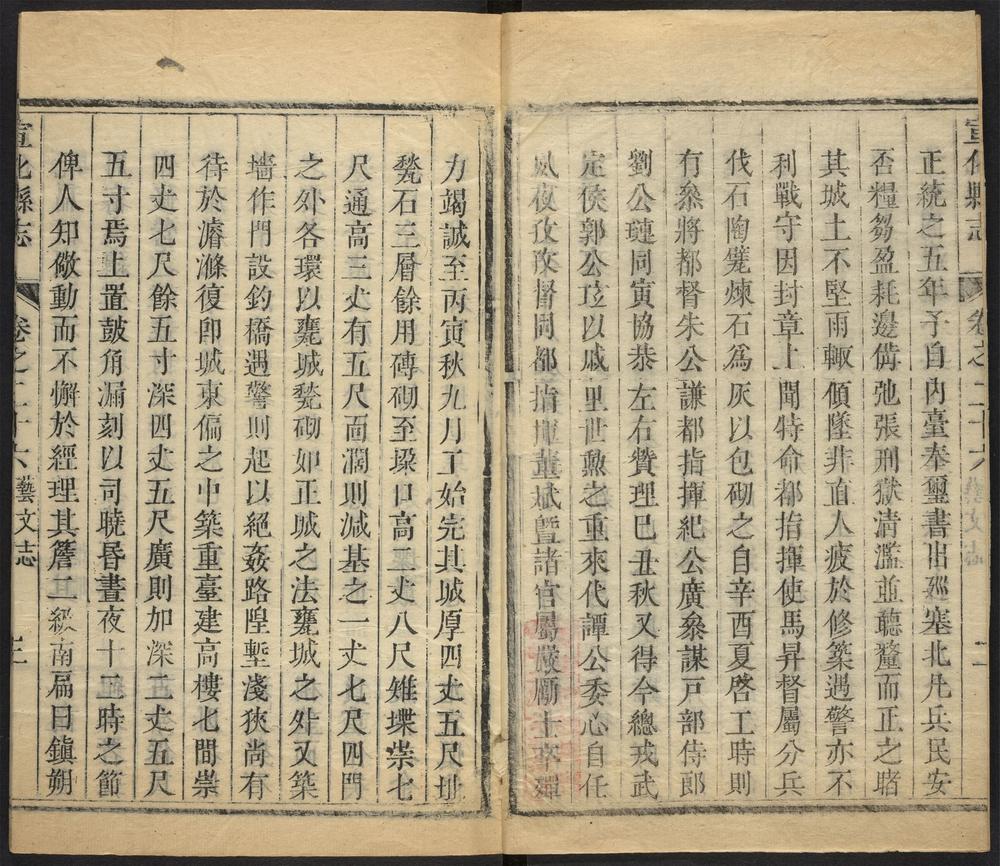 宣化縣志
卷之二十六
正統之五年予自内臺奉璽書出廵塞北凡兵民安
否糧芻盈耗邊備弛張刑獄清濫並聽釐而正之睹
其城土不堅雨輙傾墜非直人疲於修築遇警亦不
利戰守因封章上聞特命都指揮使馬昇督屬分兵
伐石陶甓煉石為灰以包砌之自辛酉夏啓工時則
有叅將都督朱公謙都指揮紀公廣叅謀戸部侍郎
劉公璉同寅協恭左右贊理巳丑秋又得今總戎武
定侯郭公玹以戚里世勲之重來代譚公委心自任
夙夜孜孜督同都指揮董斌曁諸官屬嚴勵士卒殫
力竭誠至丙寅秋九月工始完其城厚四丈五尺址
甃石三層餘用磚砌至垜口高二丈八尺雉堞崇七
尺通高三丈有五尺面濶則減基之一丈七尺四門
之外各環以甕城甃砌如正城之法甕城之外又築
墻作門設釣橋遇警則起以絕姦路隍塹淺狹尚有
待於濬滌復即城東偏之中築重臺建高樓七間崇
四丈七尺餘五寸深四丈五尺廣則加深二丈五尺
五寸焉上置鼓角漏刻以司曉昏晝夜十二時之節
俾人知儆動而不懈於經理其簷二級南扁曰鎮朔
宣化縣志
卷之二十六
藝文志